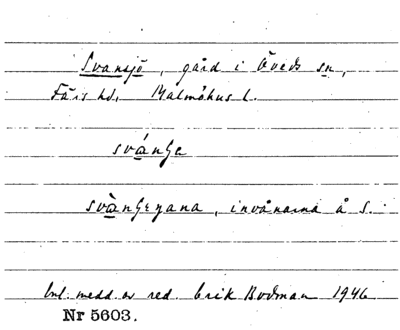 Svansjö, gård i Öveds sn,
Färs hd, Malmöhus l.
svánʒe
svànʒeɳana, invånarna å S.
Enl. medd. av red. Erik Bodman 1946
Nr 5603.